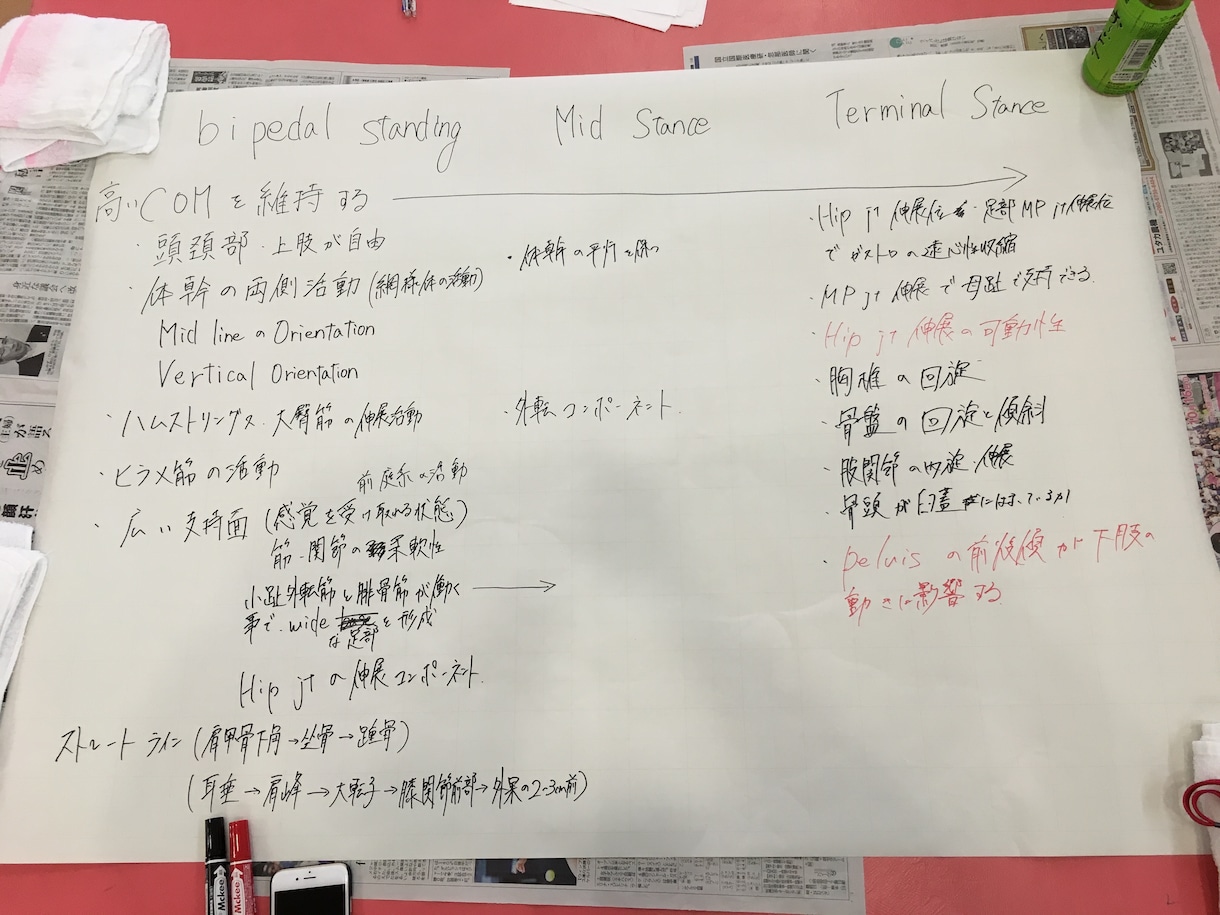 bipedal standing
Mid Stance
Terminal Stance
高いCOMを維持する
・頭頚部・上肢が自由
・体幹の両側活動(網様体の活動)
Mid line の Orientation
Vertical Orientation
・ハムストリングス・大臀筋の伸展活動
・ヒラメ筋の活動
前庭系の活動
・広い支持面(感覚を受け取れる状態)
筋・関節の柔軟性
小趾外転筋と腓骨筋が働く
事で、wide な足部を形成
Hip jt の伸展コンポーネント.
ストレートライン(肩甲骨下角→坐骨→踵骨)
(耳垂→肩峰→大転子→膝関節前部→外果の2~3cm前)
・体幹の平行を保つ
・外転コンポーネント.
・Hip jt 伸展位 足部MP jt 伸展位
でガストロの遠心性収縮
・MP jt 伸展で母趾で支持できる.
・Hip jt 伸展の可動性
・胸椎の回旋
・骨盤の回旋と傾斜
・股関節の内旋、伸展
・骨頭が臼蓋にはまっているか
・pelvis の前後傾が下肢の
動きに影響する.
国立国際医療研・忽那医師に聞く
ユタカ農機
Mckee
Mckee